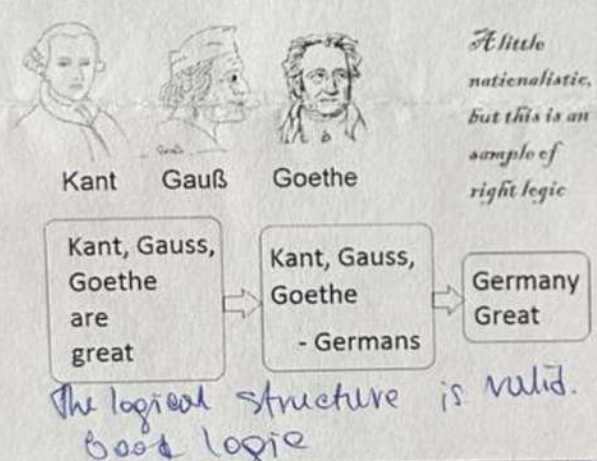 A little
nationalistic,
but this is an
sample of
right logic
Kant Gauß Goethe
Kant, Gauss,
Goethe
are
great
Kant, Gauss,
Goethe
- Germans
Germany
Great
The logical structure is valid.
Good logic